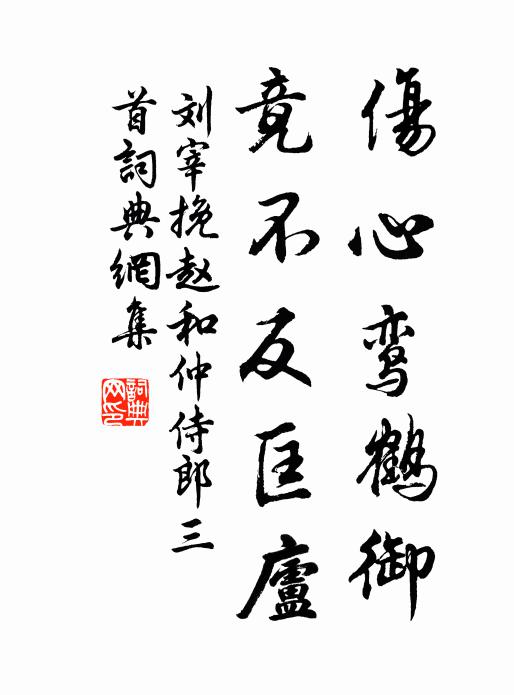 傷心鸾鶴御
竟不反匡廬
刘宰挽赵和仲侍郎三
首詞典網集
詞典
网印